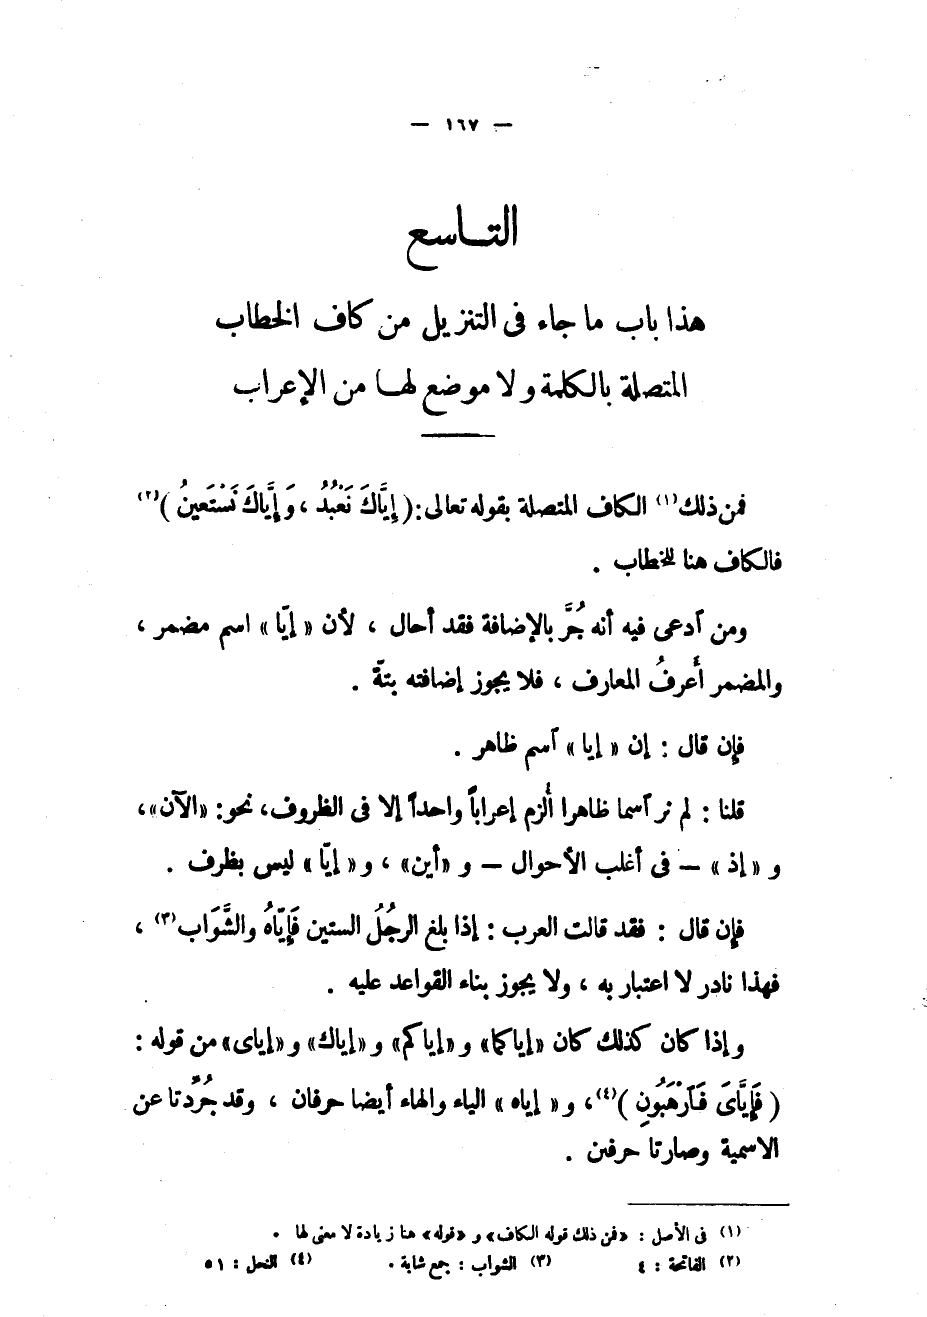 — ١٦٧ —
التاسع
هذا باب ما جاء فى التنزيل من كاف الخطاب
المتصلة بالكلمة ولا موضع لها من الإعراب
فمن ذلك(١) الكاف المتصلة بقوله تعالى: (إِيَّاكَ نَعْبُدُ ، وَإِيَّاكَ نَسْتَعينُ)(٢)
فالكاف هنا للخطاب .
ومن آدعى فيه أنه جُرَّ بالإضافة فقد أحال ، لأن «إيّا» اسم مضمر ،
والمضمر أَعرفُ المعارف ، فلا يجوز إضافته بتةّ .
فإن قال : إن «إيا» آسم ظاهر .
قلنا : لم نر آسما ظاهرا أُلزم إعراباً واحداً إلا فى الظروف، نحو: «الآن»،
و «إذ» — فى أغلب الأحوال — و «أين» ، و «إيّا» ليس بظرف .
فإن قال : فقد قالت العرب : إذا بلغ الرجُلُ الستين فَإيّاهُ والشَّوَاب(٣) ،
فهذا نادر لا اعتبار به ، ولا يجوز بناء القواعد عليه .
وإذا كان كذلك كان «إياكما» و «إياكم» و «إياك» و «إياى» من قوله :
(فَإِيَّاىَ فَآرْهَبُونِ)(٤)، و «إياه» الياء والهاء أيضا حرفان ، وقد جُرِّدتا عن
الاسمية وصارتا حرفين .
(١) فى الأصل : «فمن ذلك قوله الكاف» و «قوله» هنا زيادة لا معنى لها .
(٢) الفاتحة : ٤ (٣) الشواب : جمع شابة . (٤) النحل : ٥١